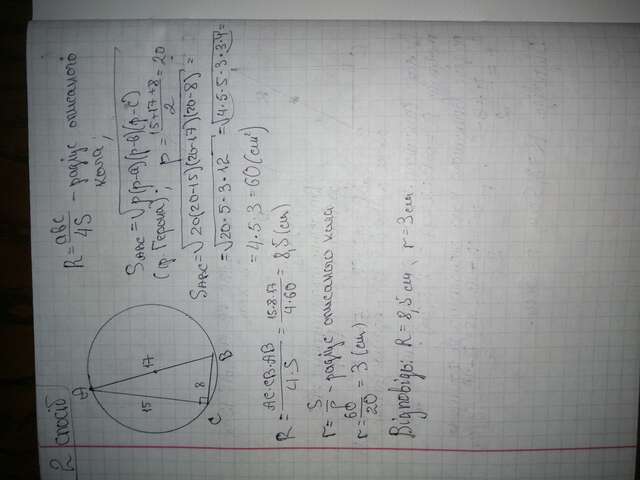 2 спосіб
A
15
17
8
C
B
R = abc/4S - радіус описаного
кола;
S_ABC = √p(p-a)(p-b)(p-c)
(ф. Герона); p = (15+17+8)/2 = 20
S_ABC = √20(20-15)(20-17)(20-8) =
= √20·5·3·12 = √4·5·5·3·3·4 =
= 4·5·3 = 60 (см²)
R = AC·CB·AB/4·S = 15·8·17/4·60 = 8,5 (см)
r = S/p - радіус описаного кола
r = 60/20 = 3 (см)
Відповідь: R = 8,5 см, r = 3 см.